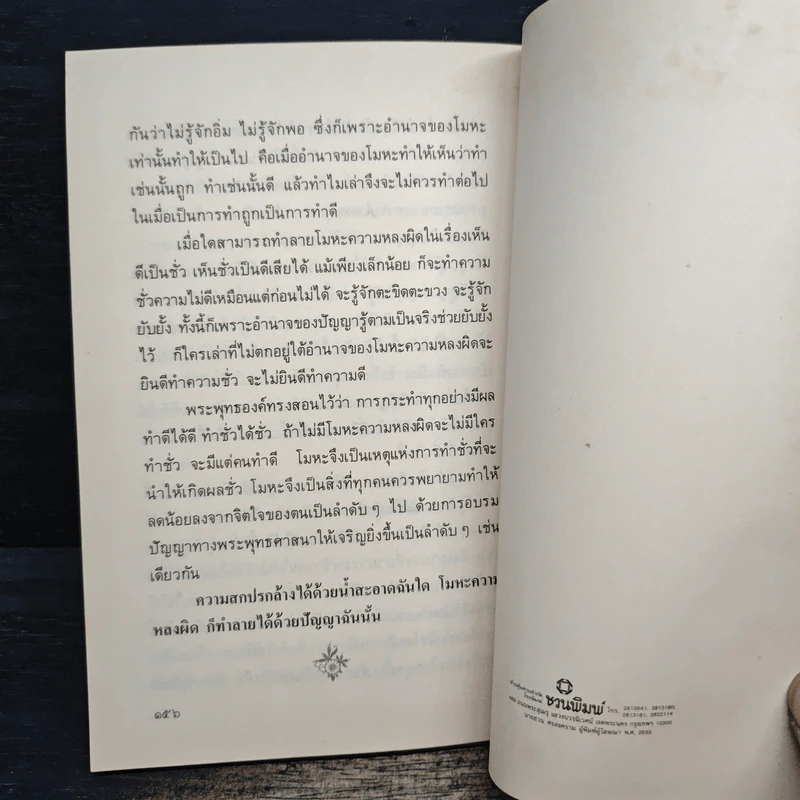 กันว่าไม่รู้จักอิ่ม ไม่รู้จักพอ ซึ่งก็เพราะอำนาจของโมหะ
เท่านั้นทำให้เป็นไป คือเมื่ออำนาจของโมหะทำให้เห็นว่าทำ
เช่นนั้นถูก ทำเช่นนั้นดี แล้วทำไมเล่าจึงจะไม่ควรทำต่อไป
ในเมื่อเป็นการทำถูกเป็นการทำดี
เมื่อใดสามารถทำลายโมหะความหลงผิดในเรื่องเห็น
ดีเป็นชั่ว เห็นชั่วเป็นดีเสียได้ แม้เพียงเล็กน้อย ก็จะทำความ
ชั่วความไม่ดีเหมือนแต่ก่อนไม่ได้ จะรู้จักตะขิดตะขวง จะรู้จัก
ยับยั้ง ทั้งนี้ก็เพราะอำนาจของปัญญารู้ตามเป็นจริงช่วยยับยั้ง
ไว้ ก็ใครเล่าที่ไม่ตกอยู่ใต้อำนาจของโมหะความหลงผิดจะ
ยินดีทำความชั่ว จะไม่ยินดีทำความดี
พระพุทธองค์ทรงสอนไว้ว่า การกระทำทุกอย่างมีผล
ทำดีได้ดี ทำชั่วได้ชั่ว ถ้าไม่มีโมหะความหลงผิดจะไม่มีใคร
ทำชั่ว จะมีแต่คนทำดี โมหะจึงเป็นเหตุแห่งการทำชั่วที่จะ
นำให้เกิดผลชั่ว โมหะจึงเป็นสิ่งที่ทุกคนควรพยายามทำให้
ลดน้อยลงจากจิตใจของตนเป็นลำดับ ๆ ไป ด้วยการอบรม
ปัญญาทางพระพุทธศาสนาให้เจริญยิ่งขึ้นเป็นลำดับ ๆ เช่น
เดียวกัน
ความสกปรกล้างได้ด้วยน้ำสะอาดฉันใด โมหะความ
หลงผิด ก็ทำลายได้ด้วยปัญญาฉันนั้น
๑๕๖
ห้างหุ้นส่วนจำกัด
โรงพิมพ์ ชวนพิมพ์ โทร. 2810541, 2813180,
2813181, 2822114
ถนนพระสุเมรุ แขวงบวรนิเวศน์ เขตพระนคร กรุงเทพฯ 10200
นายชวน ผู้พิมพ์ผู้โฆษณา พ.ศ.